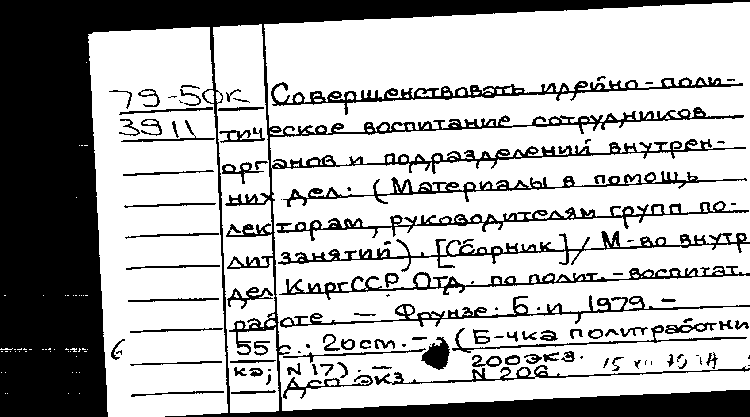 79-50к Совершенствовать идейно-поли-
3911 тическое воспитание сотрудников
органов и подразделений внутрен-
них дел: (Материалы в помощь
лекторам, руководителям групп по-
литзанятий). [Сборник] / М-во внутр
дел КиргССР Отд. по полит.-воспитат.
работе. — Фрунзе: Б.и, 1979. —
6 55 с.; 20 см. — (Б-чка политработни
ка; N 17). — 200 экз.
ДСП экз. N 206.